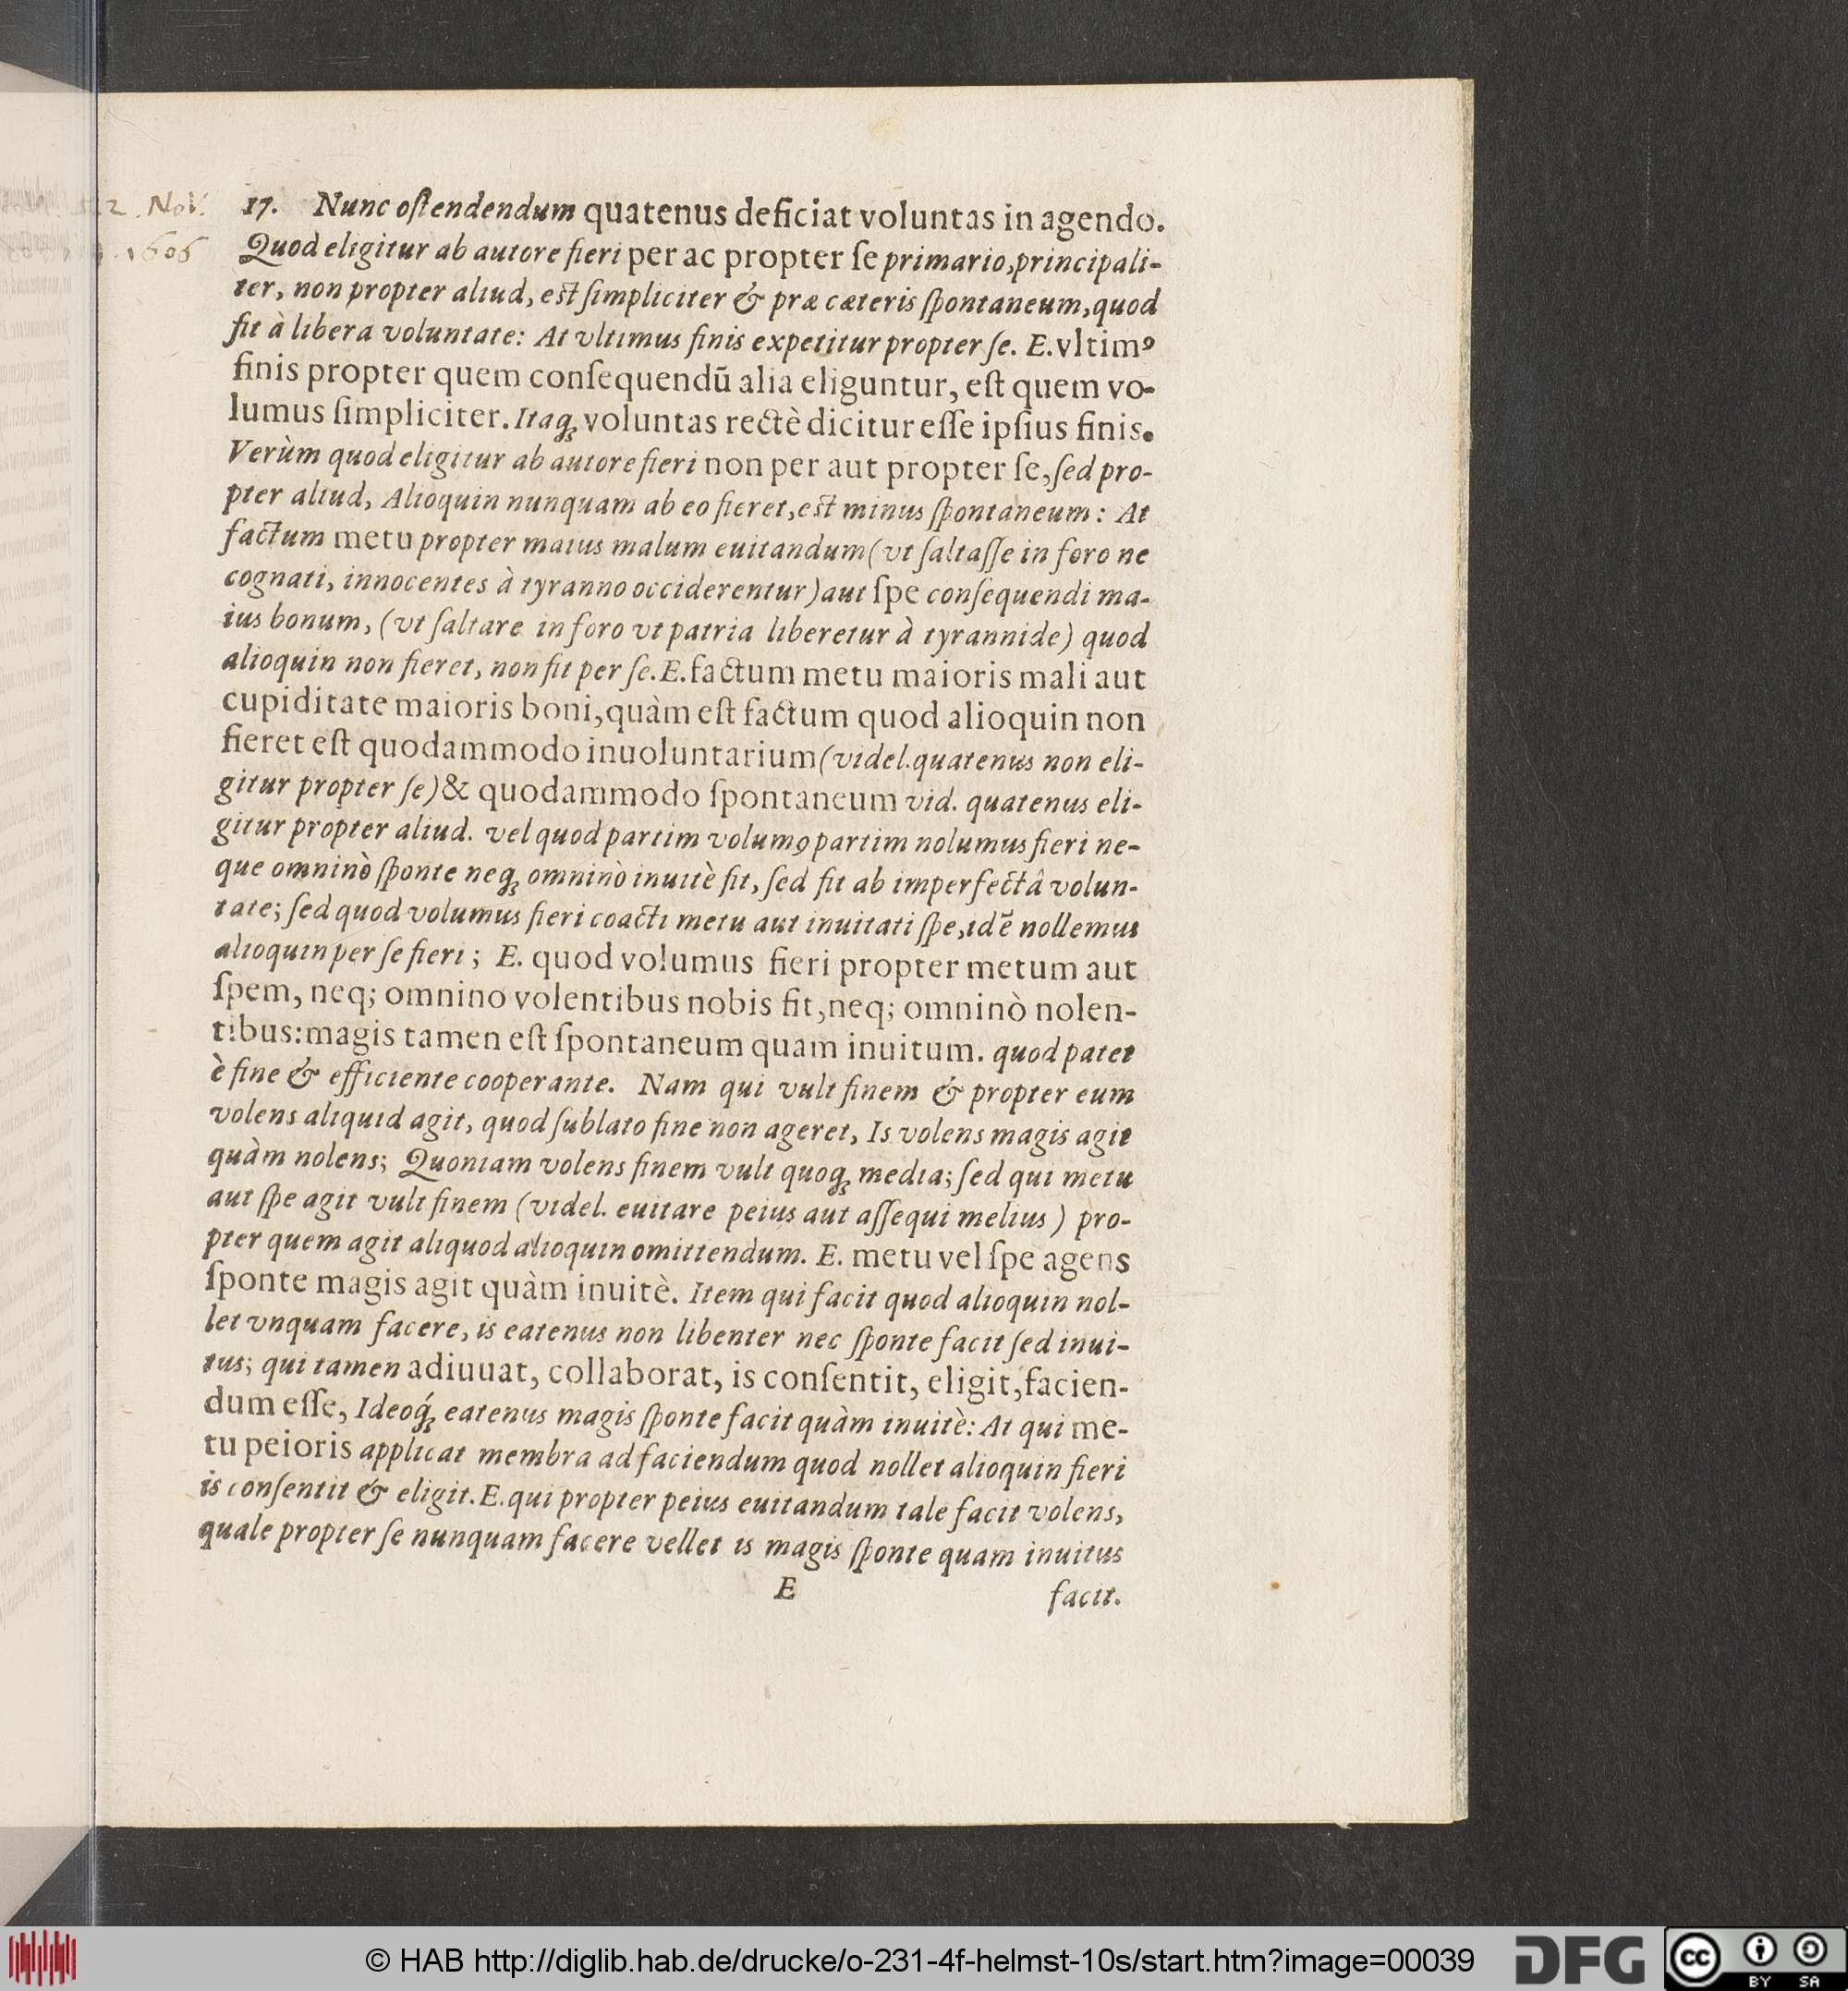 2. Nov.
1606
17. Nunc oſtendendum quatenus deficiat voluntas in agendo.
Quod eligitur ab autore fieri per ac propter ſe primario, principali-
ter, non propter aliud, eſt ſimpliciter & præ cæteris ſpontaneum, quod
fit à libera voluntate: At vltimus finis expetitur propter ſe. E. vltimꝰ
finis propter quem conſequendū alia eliguntur, eſt quem vo-
lumus ſimpliciter. Itaq; voluntas rectè dicitur eſſe ipſius finis.
Verùm quod eligitur ab autore fieri non per aut propter ſe, ſed pro-
pter aliud, Alioquin nunquam ab eo fieret, eſt minus ſpontaneum: At
factum metu propter maius malum euitandum (vt ſaltaſſe in foro ne
cognati, innocentes à tyranno occiderentur) aut ſpe conſequendi ma-
ius bonum, (vt ſaltare in foro vt patria liberetur à tyrannide) quod
alioquin non fieret, non fit per ſe. E. factum metu maioris mali aut
cupiditate maioris boni, quàm eſt factum quod alioquin non
fieret eſt quodammodo inuoluntarium (videl. quatenus non eli-
gitur propter ſe) & quodammodo ſpontaneum vid. quatenus eli-
gitur propter aliud. vel quod partim volumꝰ partim nolumus fieri ne-
que omninò ſponte neq; omninò inuitè fit, ſed fit ab imperfectâ volun-
tate; ſed quod volumus fieri coacti metu aut inuitati ſpe, idē nollemus
alioquin per ſe fieri; E. quod volumus fieri propter metum aut
ſpem, neq; omnino volentibus nobis fit, neq; omninò nolen-
tibus: magis tamen eſt ſpontaneum quam inuitum. quod patet
è fine & efficiente cooperante. Nam qui vult finem & propter eum
volens aliquid agit, quod ſublato fine non ageret, Is volens magis agit
quàm nolens; Quoniam volens finem vult quoq; media; ſed qui metu
aut ſpe agit vult finem (videl. euitare peius aut aſſequi melius) pro-
pter quem agit aliquod alioquin omittendum. E. metu vel ſpe agens
ſponte magis agit quàm inuitè. Item qui facit quod alioquin nol-
let vnquam facere, is eatenus non libenter nec ſponte facit ſed inui-
tus; qui tamen adiuuat, collaborat, is conſentit, eligit, facien-
dum eſſe, Ideoq́; eatenus magis ſponte facit quàm inuitè: At qui me-
tu peioris applicat membra ad faciendum quod nollet alioquin fieri
is conſentit & eligit. E. qui propter peius euitandum tale facit volens,
quale propter ſe nunquam facere vellet is magis ſponte quam inuitus
E facit.
© HAB http://diglib.hab.de/drucke/o-231-4f-helmst-10s/start.htm?image=00039
DFG
cc BY SA